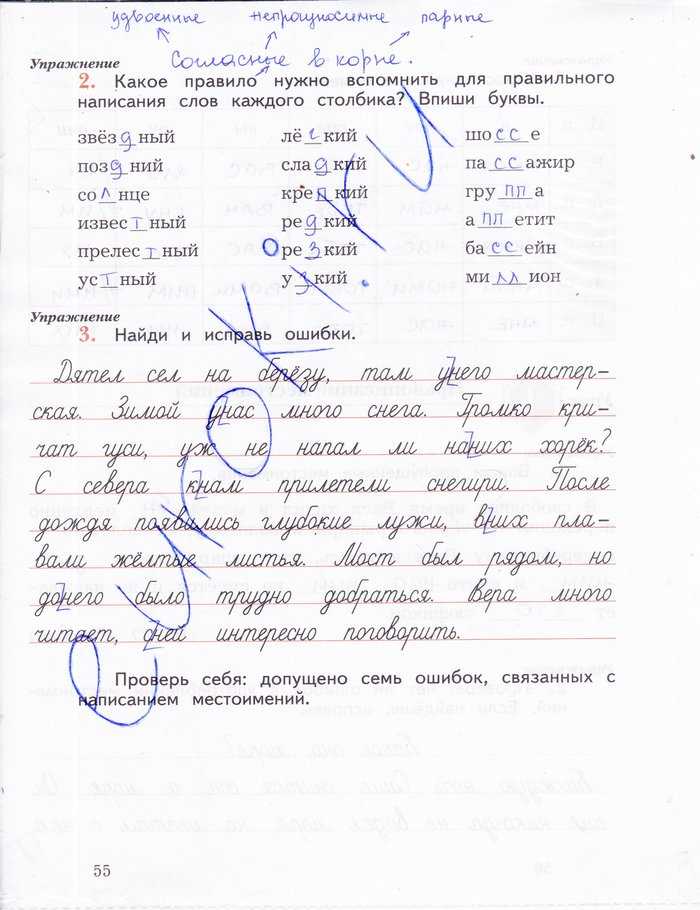 удвоенные непроизносимые парные
Упражнение Согласные в корне.
2. Какое правило нужно вспомнить для правильного
написания слов каждого столбика? Впиши буквы.
звёздный лёгкий шоссе
поздний сладкий пассажир
солнце крепкий группа
известный редкий аппетит
прелестный резкий бассейн
устный узкий миллион
Упражнение
3. Найди и исправь ошибки.
Дятел сел на берёзу, там унего мастер-
ская. Зимой унас много снега. Громко кри-
чат гуси, уж не напал ли наних хорёк?
С севера кнам прилетели снегири. После
дождя появились глубокие лужи, вних пла-
вали жёлтые листья. Мост был рядом, но
донего было трудно добраться. Вера много
читает, сней интересно поговорить.
Проверь себя: допущено семь ошибок, связанных с
написанием местоимений.
55